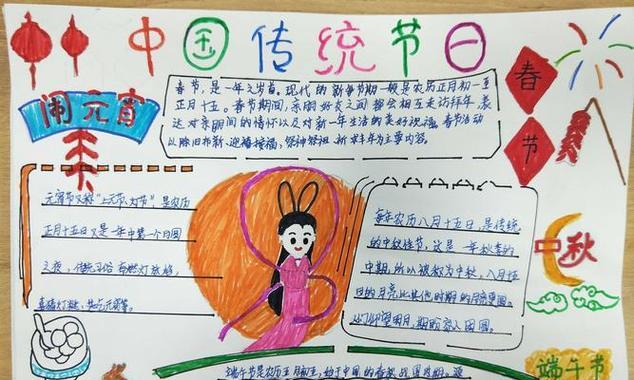 中国传统节日
春节,是一年之岁首。现代的新年节期一般是农历正月初一至
正月十五。春节期间,亲朋好友之间都会相互走访拜年,表
达对亲朋间的情怀以及对新一年生活的美好祝福。春节活动
以除旧布新、迎禧接福、祭神祭祖、祈求丰年为主要内容。
春节
闹元宵
元宵节又称“上元节、灯节”是农历
正月十五日又是一年中第一个月圆
之夜,传统习俗有燃灯放焰,
喜猜灯谜,共吃元宵等。
每年农历八月十五日,是传统
的中秋佳节,这是一年秋季的
中期,所以被称为中秋,八月十五
日的月亮比其他时期的月亮更圆,
人们仰望明月,期盼家人团圆。
中秋
端午节
端午节是农历五月初五,始于中国的春秋战国时期,